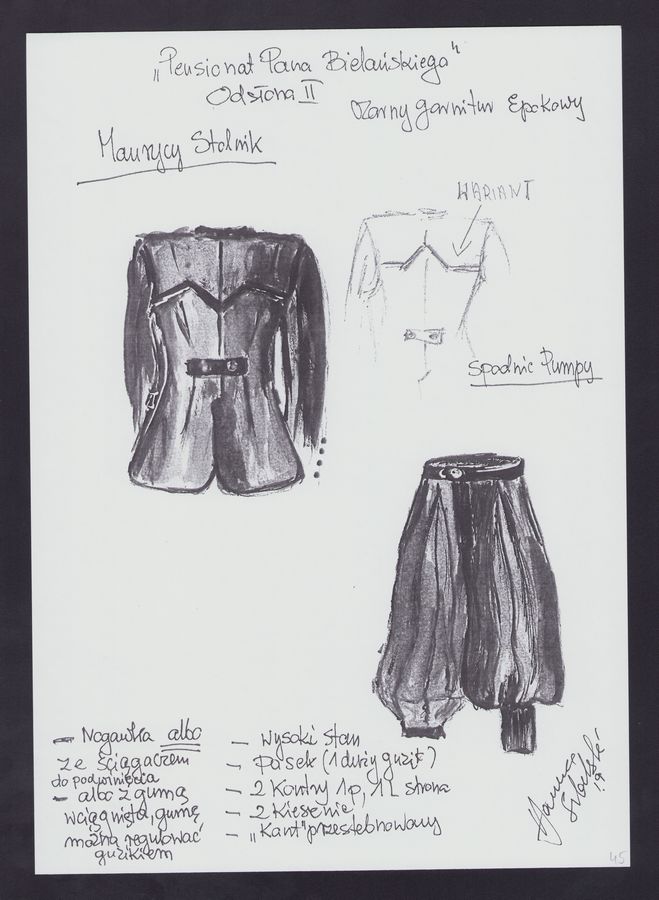 „Pensionat Pana Bielańskiego"
Odsłona II
Czarny garnitur Epokowy
Maurycy Stolnik
WARIANT
Spodnie Pumpy
— Nogawka albo
ze ściągaczem
do podwinięcia
— albo z gumą
wciągniętą, gumę
można regulować
guzikiem
— Wysoki stan
— Pasek (1 duży guzik)
— 2 Kontry 1p, 1L strona
— 2 Kieszenie
— „Kant" przestebnowany
45